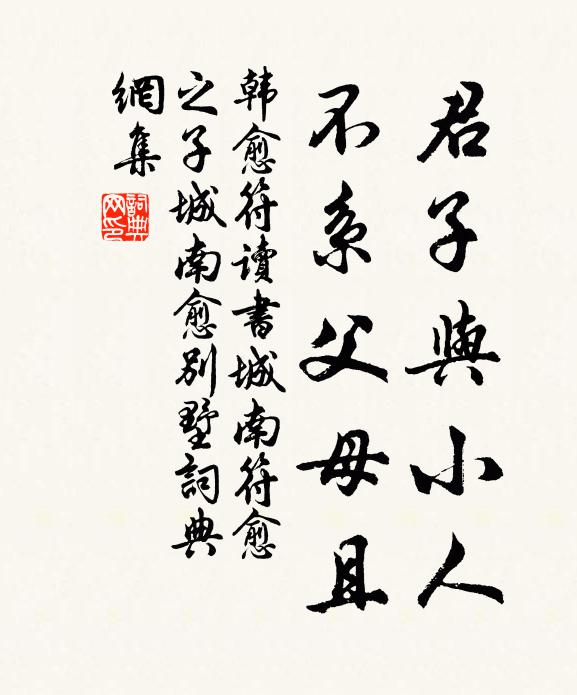 君子與小人
不系父母且
韩愈符讀書城南符愈
之子城南愈别墅詞典
網集
詞典
网印